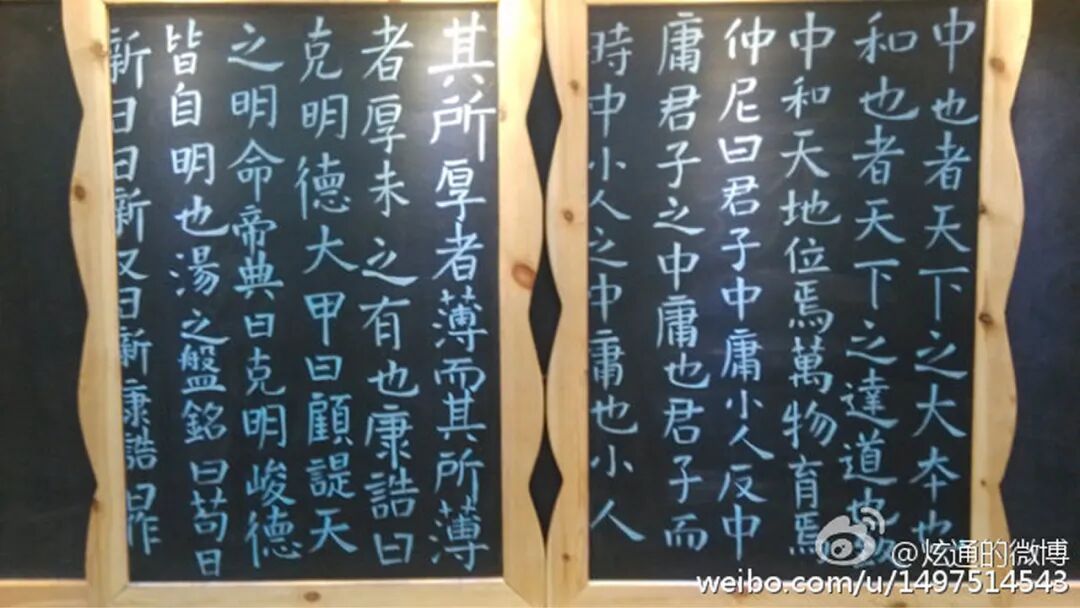 中也者天下之大本也
和也者天下之達道也致
中和天地位焉萬物育焉
仲尼曰君子中庸小人反中
庸君子之中庸也君子而
時中小人之中庸也小人
其所厚者薄而其所薄
者厚未之有也康誥曰
克明德大甲曰顧諟天
之明命帝典曰克明峻德
皆自明也湯之盤銘曰苟日
新日日新又日新康誥曰作
@炫通的微博
weibo.com/u/1497514543